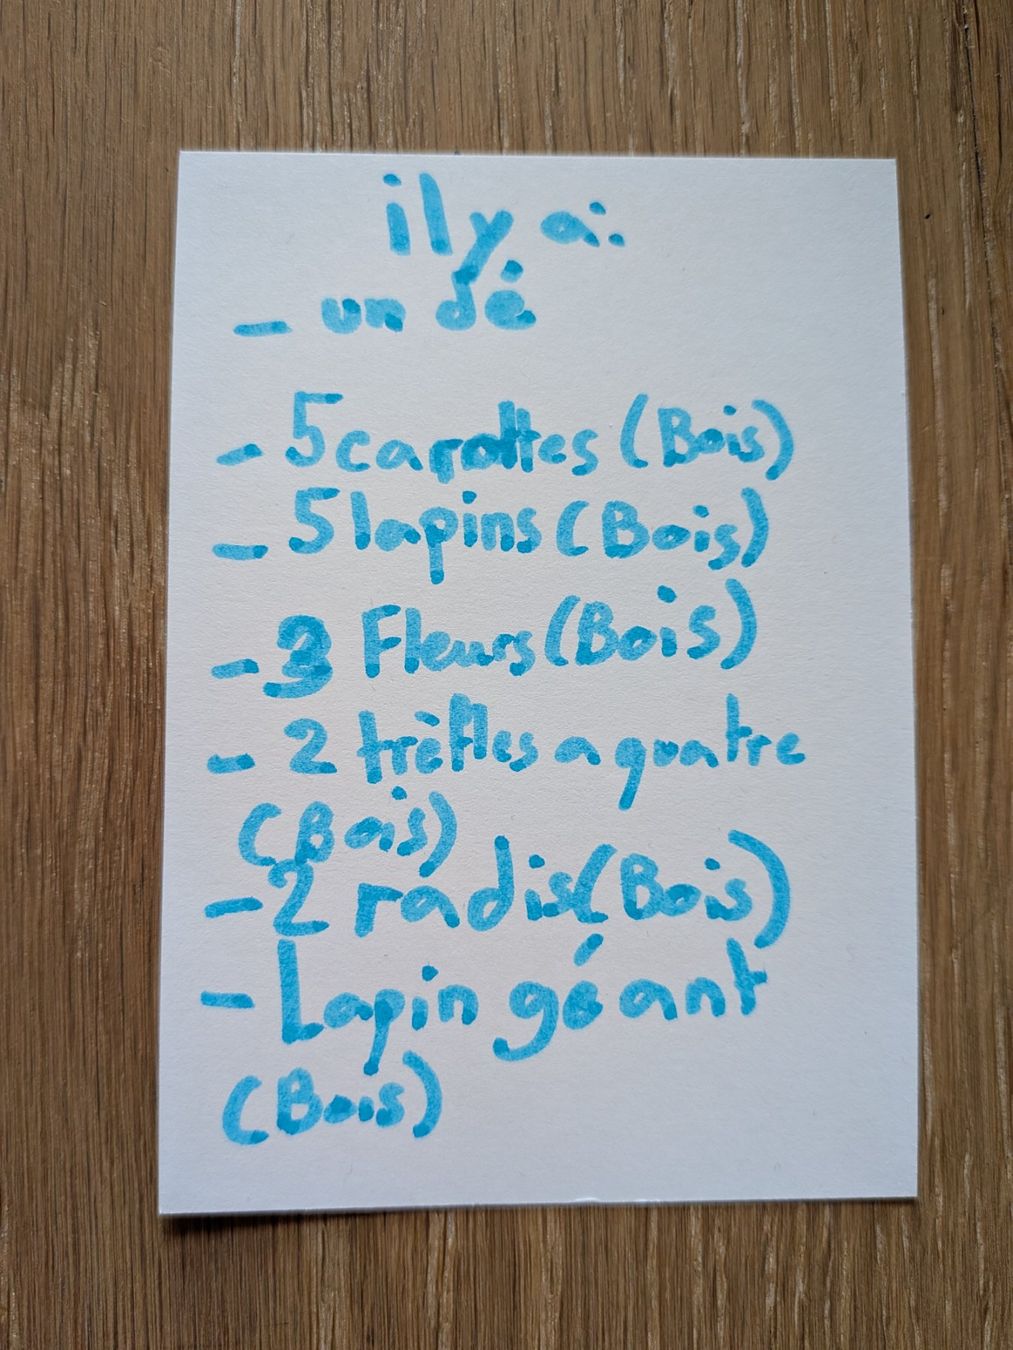 il y a:
- un dé
- 5 carottes (Bois)
- 5 lapins (Bois)
- 3 Fleurs (Bois)
- 2 trèfles a quatre
(Bois)
- 2 radis (Bois)
- Lapin géant
(Bois)